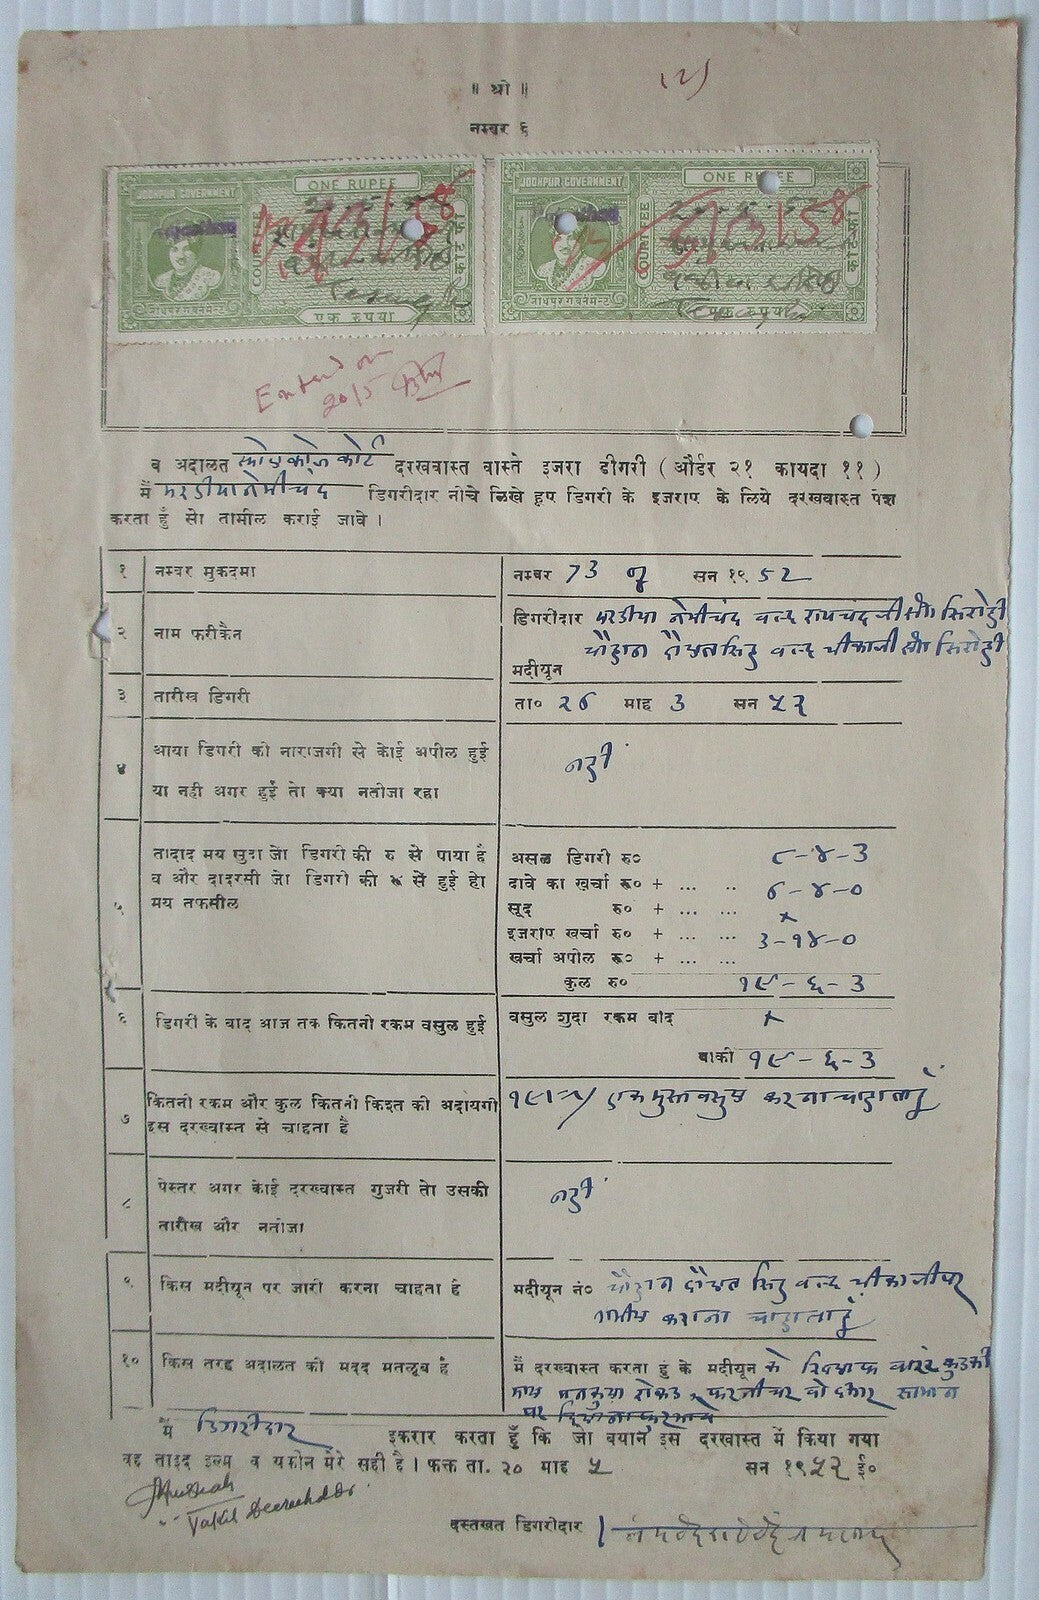 (2)
॥ श्री ॥
नम्बर ६
JODHPUR GOVERNMENT ONE RUPEE
COURT FEE कोर्ट फी
जोधपुर गवर्नमेन्ट एक रुपया
JODHPUR GOVERNMENT ONE RUPEE
COURT FEE कोर्ट फी
जोधपुर गवर्नमेन्ट एक रुपया
Entered on
20/5
ब अदालत स्मोल कोज कोर्ट दरखवास्त वास्ते इजरा डीगरी ( ऑर्डर २१ कायदा ११ )
मैं मरडीया नेमीचंद डिगरीदार नीचे लिखे हूए डिगरी के इजराए के लिये दरखवास्त पेश
करता हुँ सो तामील कराई जावे ।
१ नम्बर मुकदमा नम्बर 73 सन १९ 52
२ नाम फरीकैन डिगरीदार मरडीया नेमीचंद वल्द रायचंदजी सा॰ सिरोही
चौहान दौलतसिंह वल्द चीकाजी सा॰ सिरोही
मदीयून
३ तारीख डिगरी ता० २6 माह 3 सन ५२
४ आया डिगरी की नाराजगी से कोई अपील हुई नहीं
या नही अगर हुई तो क्या नतीजा रहा
५ तादाद मय सुदा जो डिगरी की रु से पाया है असल डिगरी रु० ८-४-3
व और दादरसी जो डिगरी की रू सें हुई हो दावे का खर्चा रू० + ... .. 6-४-0
मय तफसील सूद रु० + ... ... x
इजराए खर्चा रु० + ... ... 3-१४-0
खर्चा अपील रू० + ... ...
कुल रु० १८-६-3
६ डिगरी के बाद आज तक कितनी रकम वसुल हुई वसुल शुदा रकम बाद x
बाकी १८-६-3
७ कितनी रकम और कुल कितनी किश्त की अदायगी एक मुस्त वसुल करना चाहता हूं
इस दरख्वास्त से चाहता है
८ पेस्तर अगर कोई दरख्वास्त गुजरी तो उसकी नहीं
तारीख और नतीजा
९ किस मदीयून पर जारी करना चाहता है मदीयून नं० चौहान दौलतसिंह वल्द चीकाजी पर
तामील कराना चाहता हूं
१० किस तरह अदालत की मदद मतलूब है मैं दरख्वास्त करता हुं के मदीयून के खिलाफ वारंट कुडकी
माल मनकुला रोकड फरनीचर वो सामान
पर
मैं डिगरीदार इकरार करता हूँ कि जो बयान इस दरखास्त में किया गया
वह ताइद इल्म व यकीन मेरे सही है । फक्त ता. २० माह ५ सन १९५२ ई०
Vakil Decreeholder
दस्तखत डिगरीदार